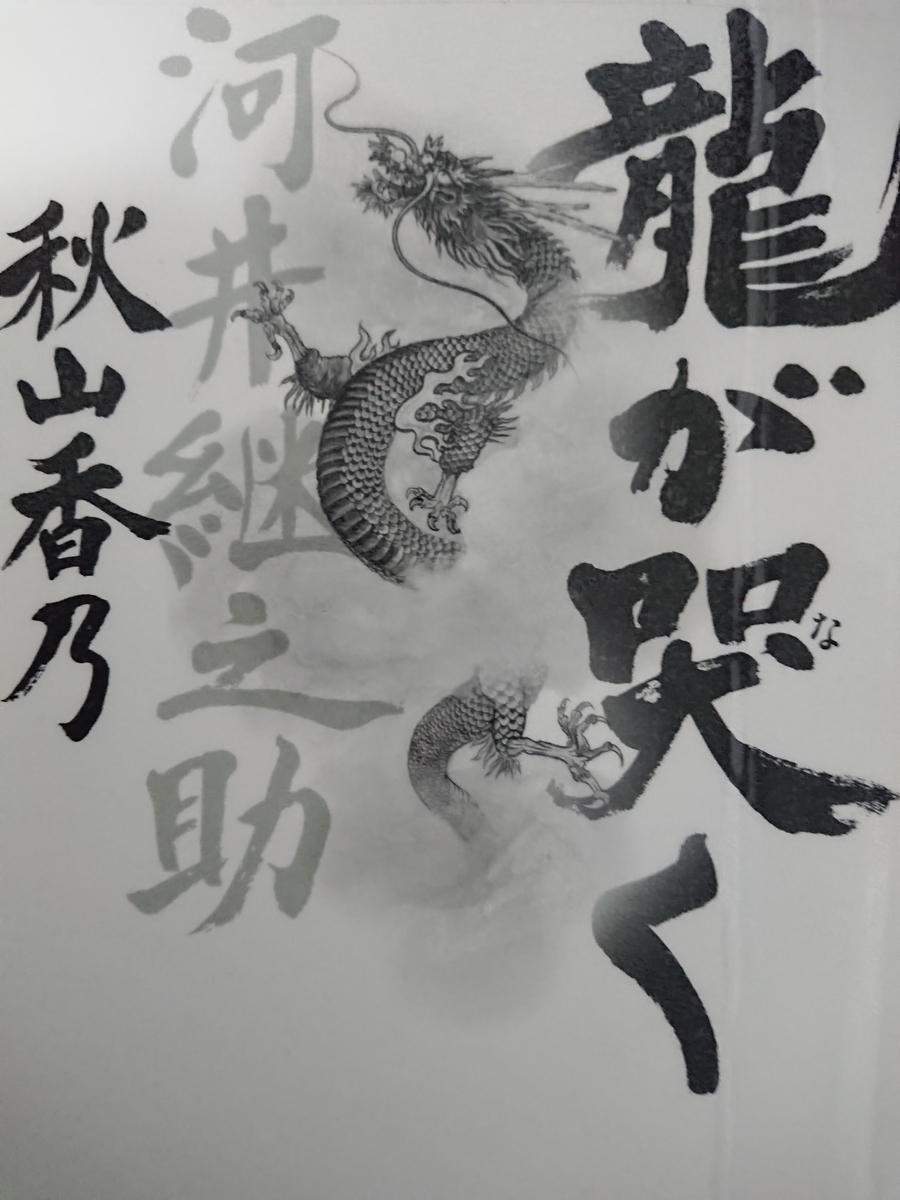 龍が哭く
な
河井継之助
秋山香乃